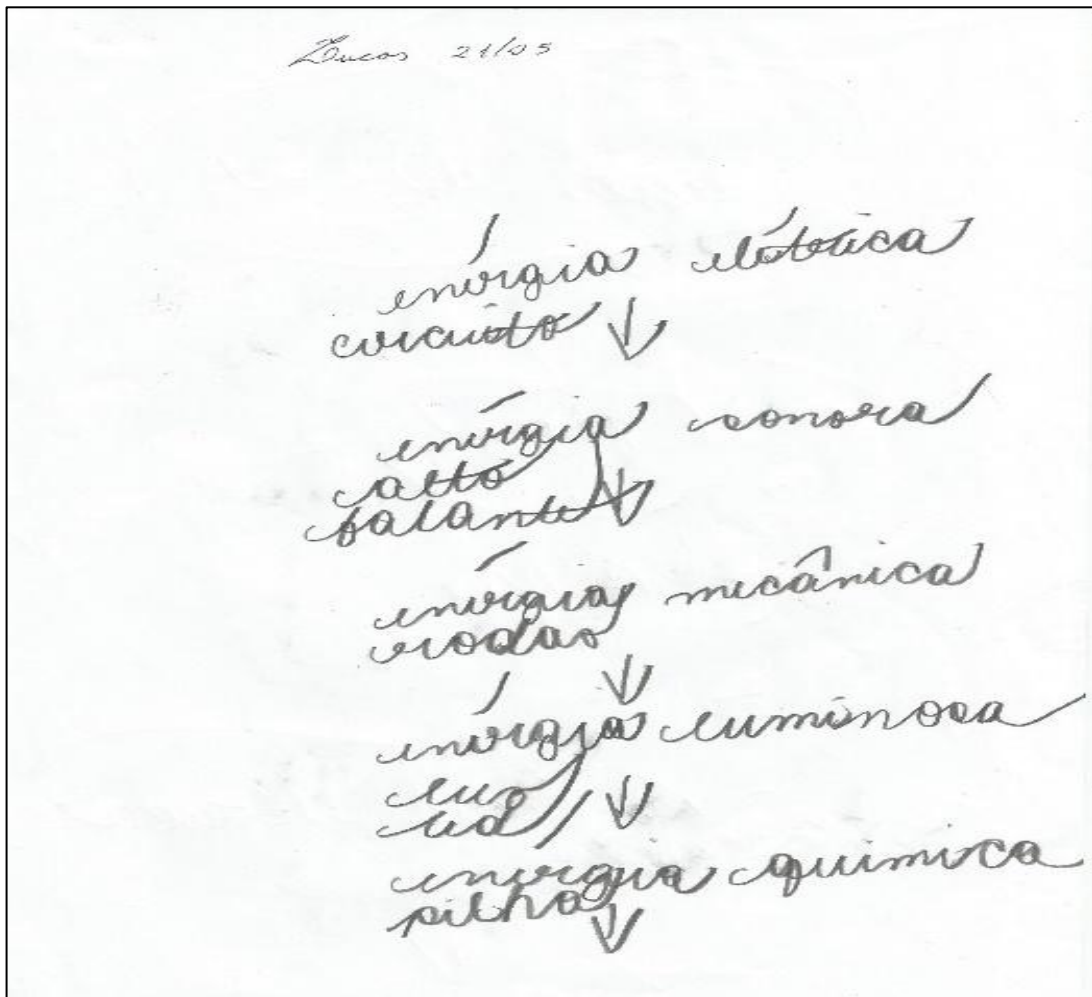 Lucas 21/05
enérgia elétrica
circuito
enérgia sonora
alto
falante
enérgia mecânica
rodas
enérgia luminosa
luz
led
enérgia quimica
pilha